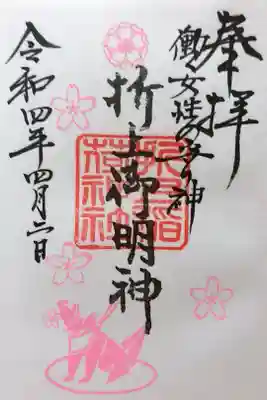 奉拝
働く女性の守り神
折上御明神
折上稲荷神社
令和四年四月二日